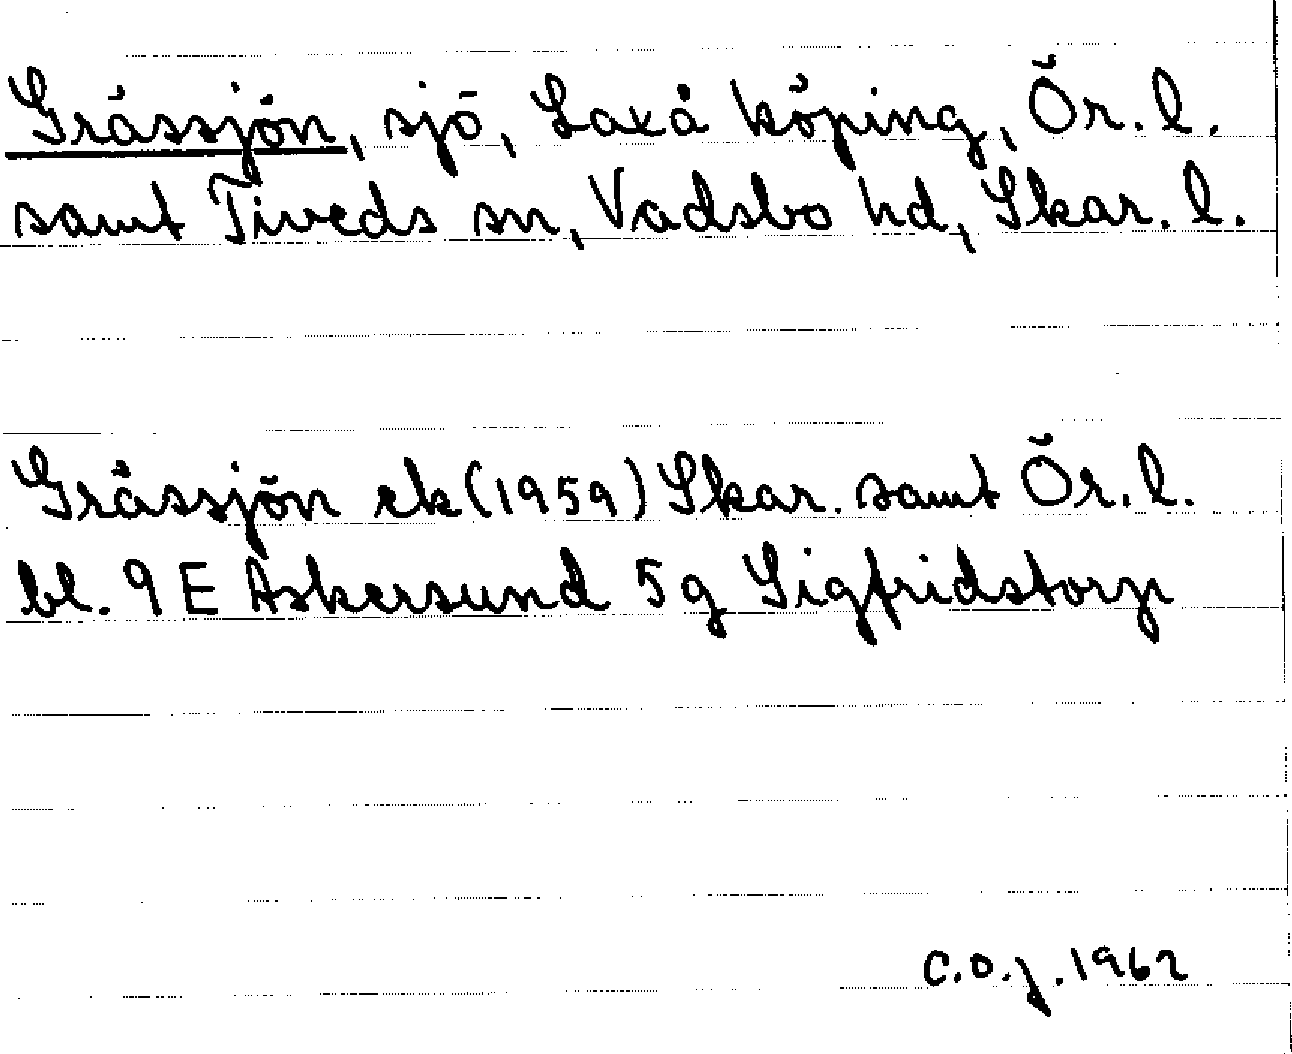 Gråssjön, sjö, Laxå köping, Ör. l.
samt Tiveds sn, Vadsbo hd, Skar. l.
Gråssjön ek (1959) Skar. samt Ör. l.
bl. 9 E Askersund 5 g Sigfridstorp
C.O.J. 1962